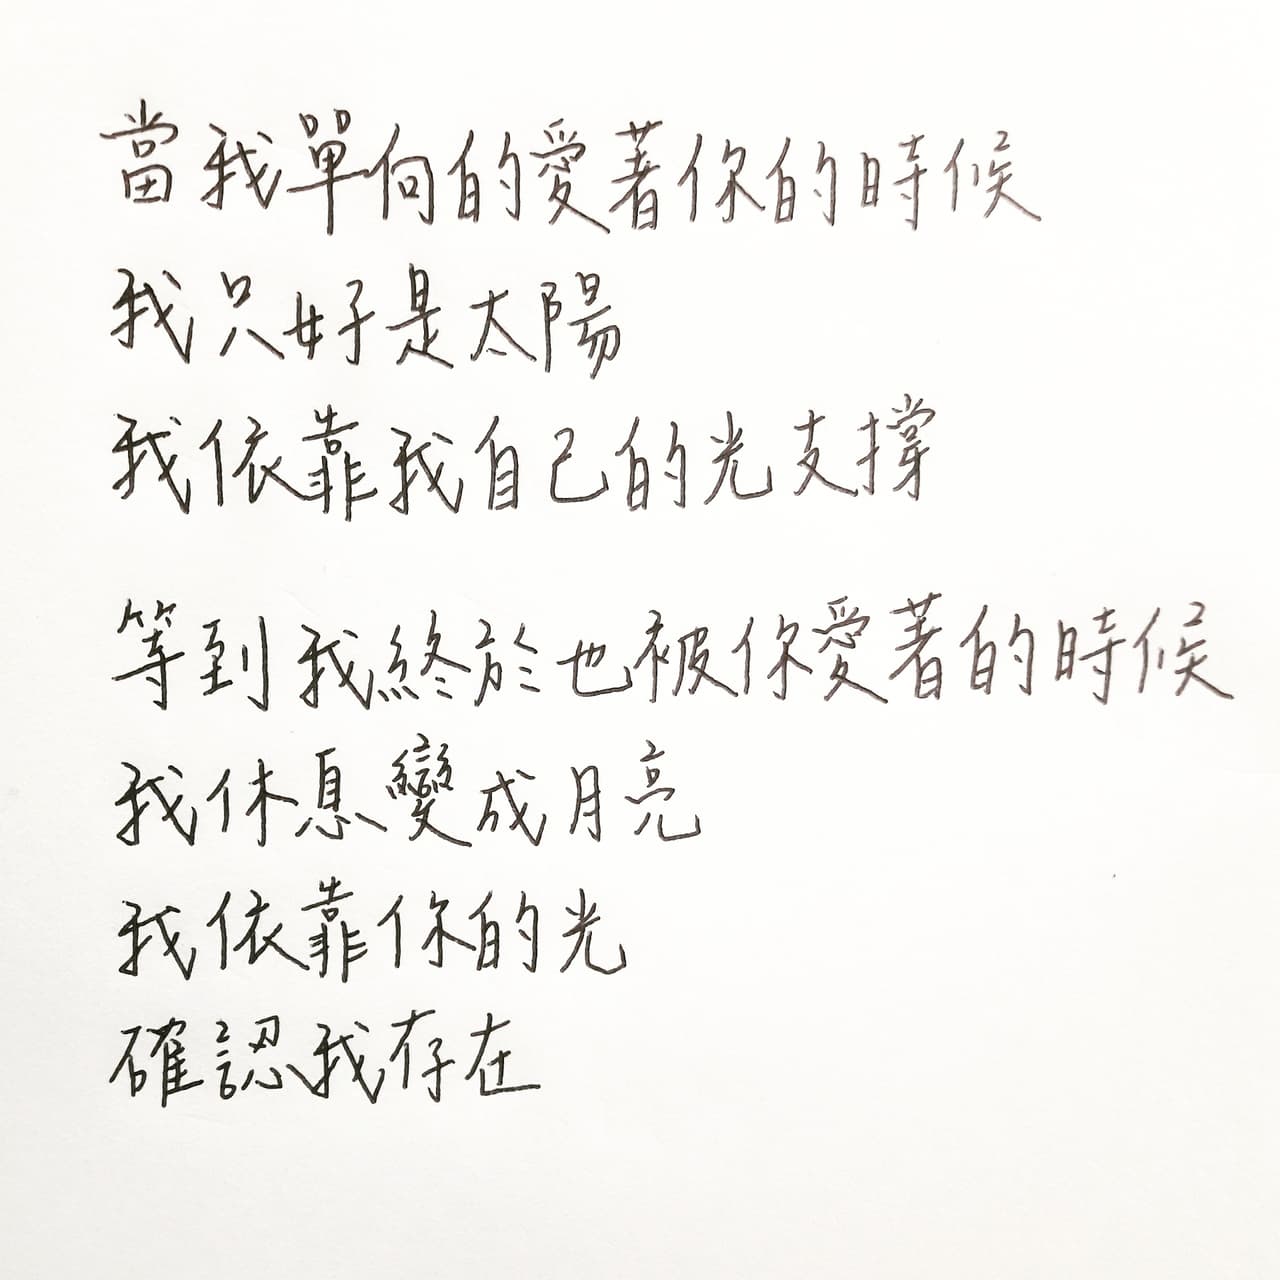 當我單向的愛著你的時候
我只好是太陽
我依靠我自己的光支撐
等到我終於也被你愛著的時候
我休息變成月亮
我依靠你的光
確認我存在